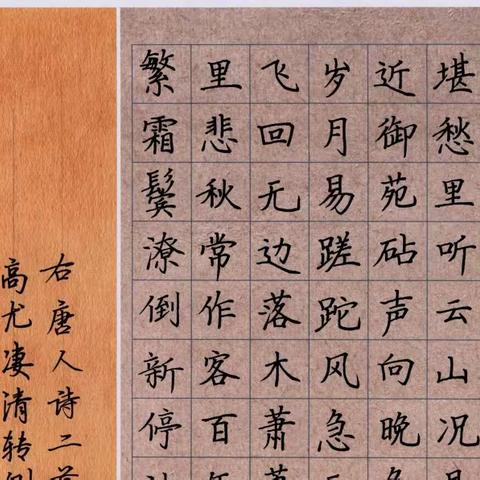 堪愁里听云山况
近御苑砧声向晚
岁月易蹉跎风急
飞回无边落木萧
里悲秋常作客百
繁霜鬓潦倒新停
右唐人诗二首
高尤凄清转